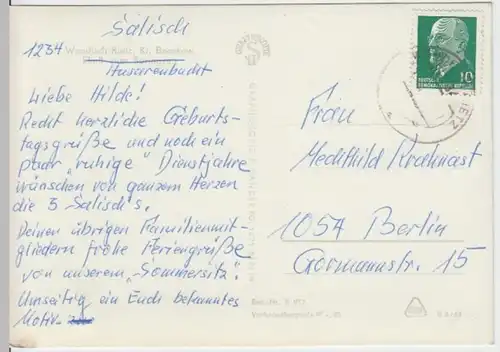 Salisch
1234 Wendisch Rietz, Kr. Beeskow
Husarenbucht
Liebe Hilde!
Recht herzliche Geburts-
tagsgrüße und noch ein
paar „ruhige" Dienstjahre
wünschen von ganzem Herzen
die 3 Salisch's.
Deinen übrigen Familienmit-
gliedern frohe Feriengrüße
von unserem „Sommersitz".
Umseitig ein Euch bekanntes
Motiv.
DEUTSCHE
DEMOKRATISCHE REPUBLIK
10
RIETZ
Frau
Mechthild
1054 Berlin
Gormannstr. 15